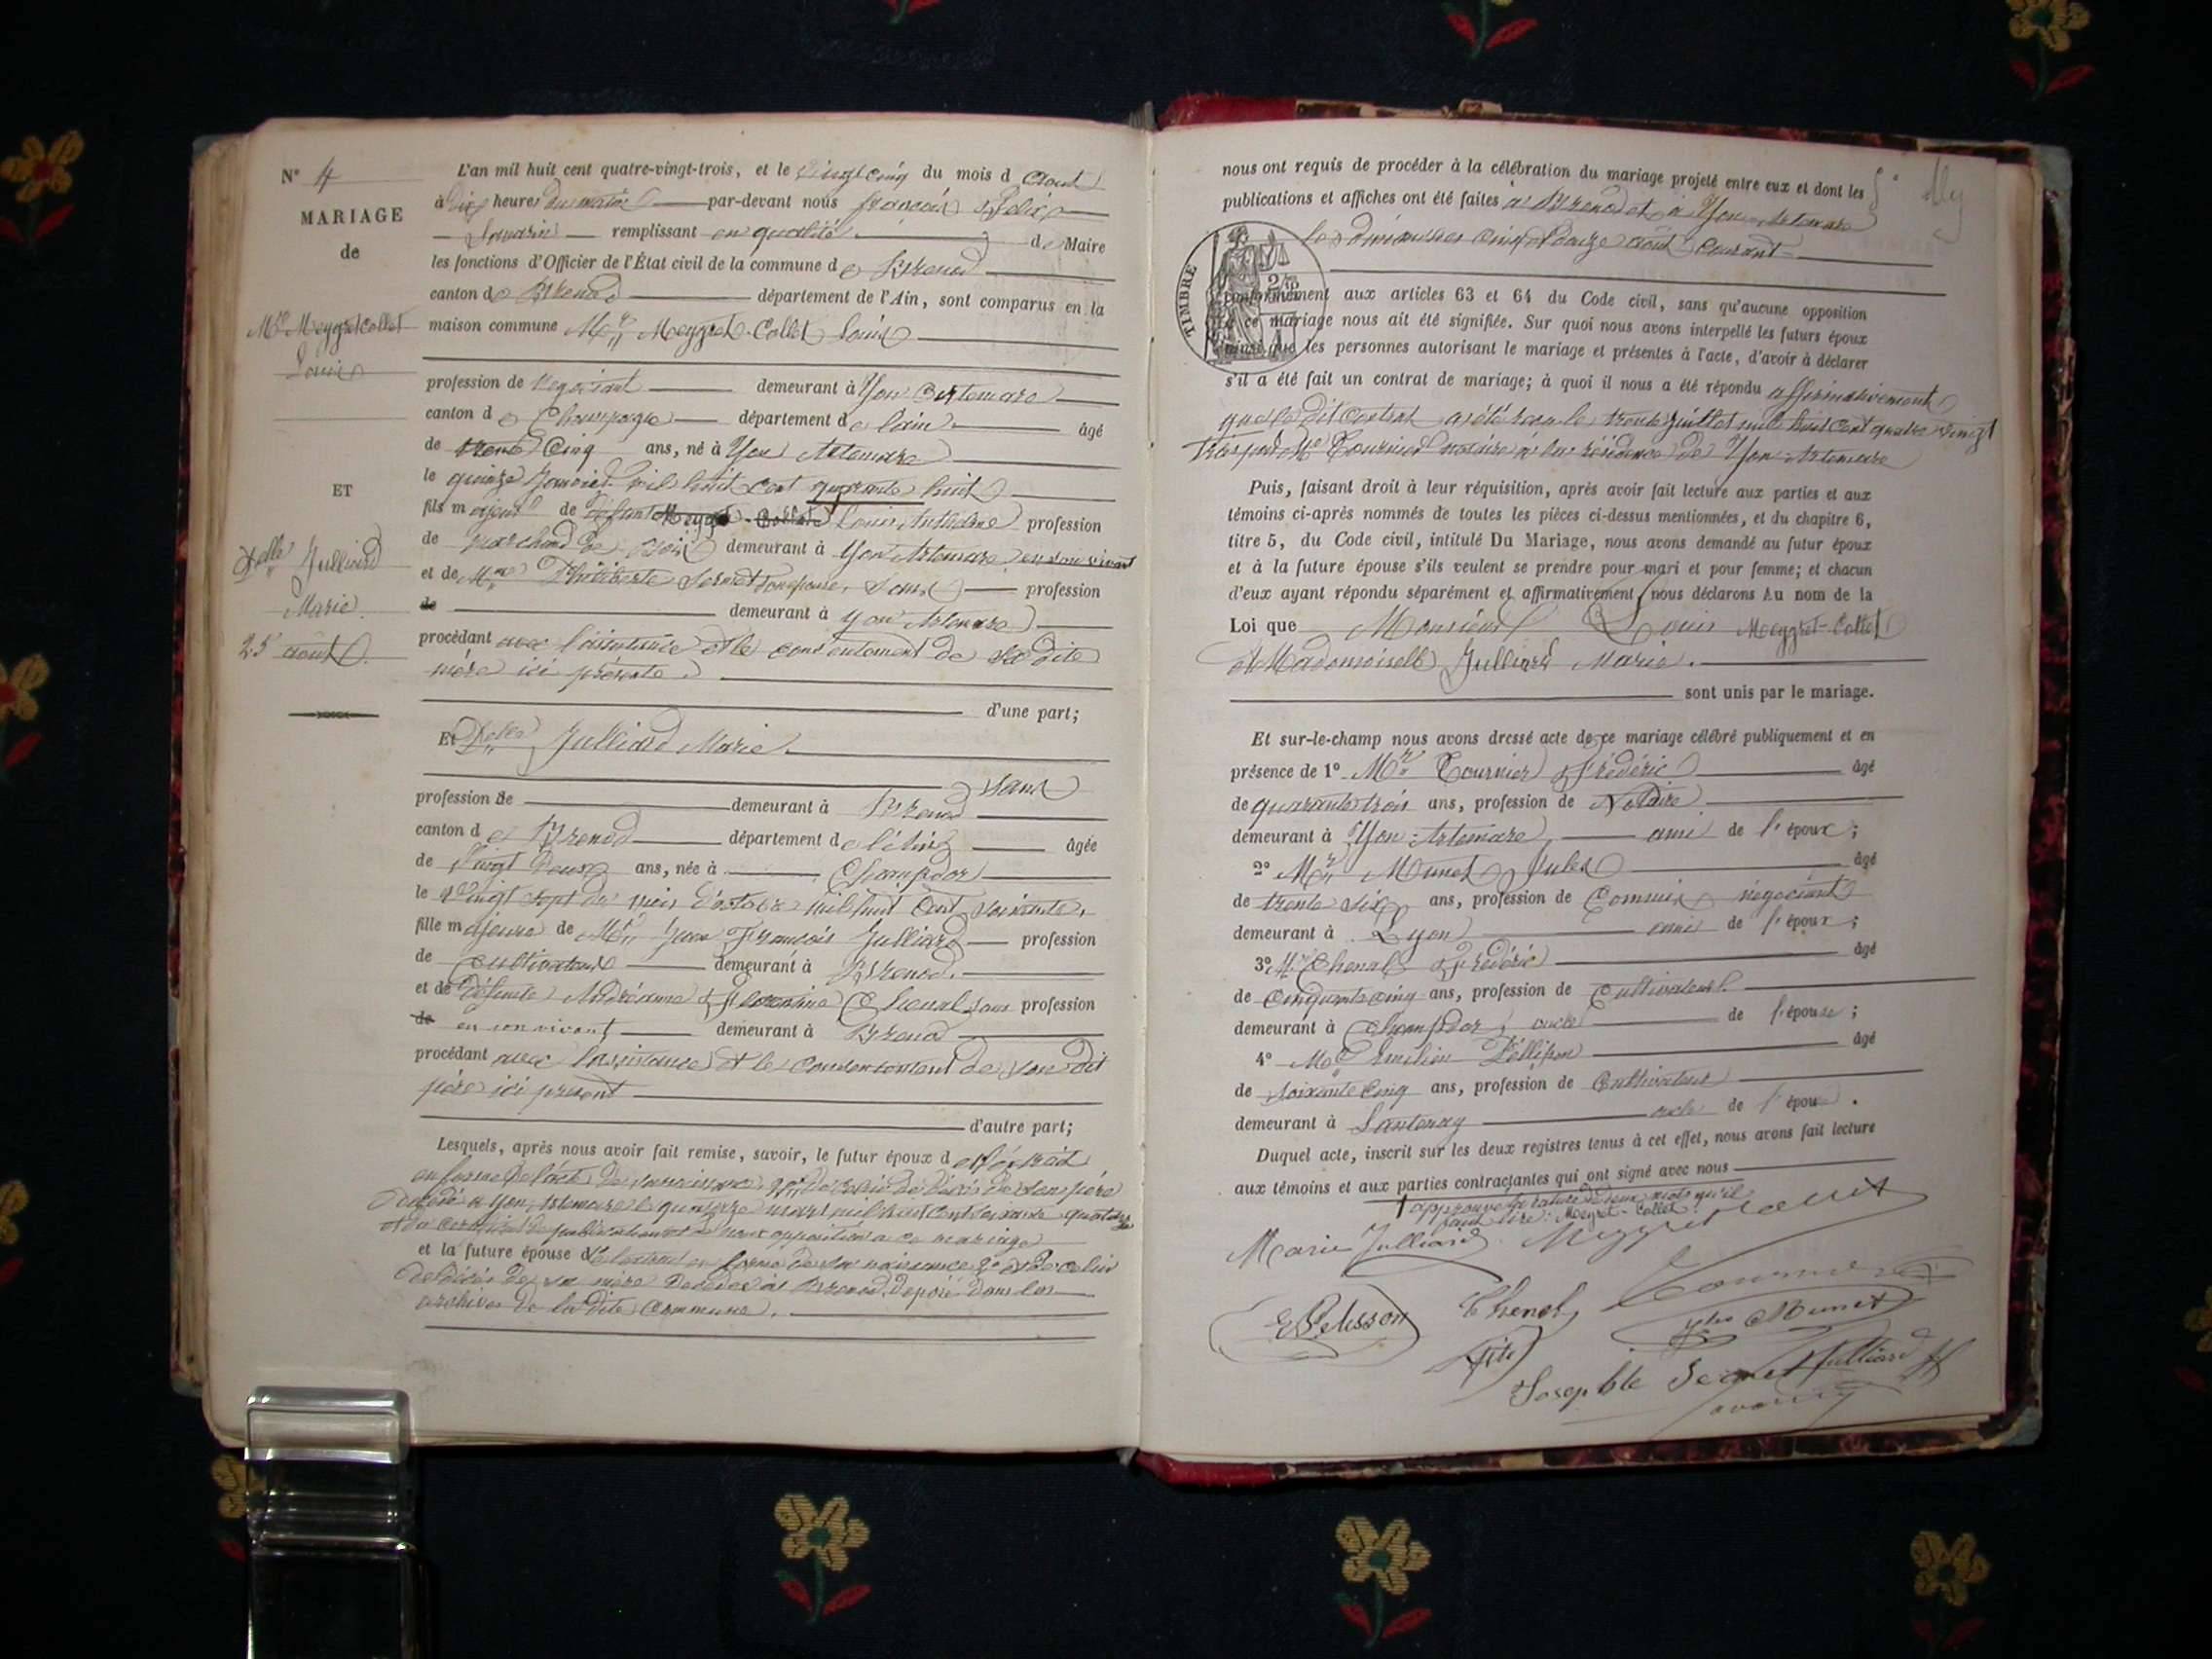 N° 4
MARIAGE
de
Mr Meygret Collet
Louis
ET
Delle Julliard
Marie
25 août
L'an mil huit cent quatre-vingt-trois, et le vingt cinq du mois d août
à dix heures du matin par-devant nous françois félix
Savarin remplissant en qualité de Maire
les fonctions d'Officier de l'État civil de la commune de Brenod
canton de Brenod département de l'Ain, sont comparus en la
maison commune Mr Meygret-Collet Louis
profession de négociant demeurant à Yon Artemare
canton de Champagne département de l'ain âgé
de trente cinq ans, né à Yon Artemare
le quinze Janvier mil huit cent quarante huit
fils majeur de défunt Meygret-Collet Louis Anthelme profession
de marchand de bois demeurant à Yon Artemare en son vivant
et de Mme Philiberte Sernet son épouse, sans profession
de demeurant à Yon Artemare
procédant avec l'assistance et le consentement de sa dite
mère ici présente
d'une part;
Et Delle Julliard Marie
sans
profession de demeurant à Brenod
canton de Brenod département de l'Ain âgée
de vingt deux ans, née à Champdor
le vingt sept du mois d'octobre mil huit cent soixante
fille majeure de Mr Jean François Julliard profession
de cultivateur demeurant à Brenod
et de défunte Andréanne Florentine Chenal sans profession
de en son vivant demeurant à Brenod
procédant avec l'assistance et le consentement de son dit
père ici présent
d'autre part;
Lesquels, après nous avoir fait remise, savoir, le futur époux d
en forme de l'acte de naissance, 2° de celui de décès de son père
décédé à Yon, Artemare le quatorze mars mil huit cent soixante quatorze
et du certificat de publication et de non opposition à ce mariage
et la future épouse de l'extrait en forme de sa naissance 2° de celui
de décès de sa mère décédée à Brenod déposé dans les
archives de la dite commune.
nous ont requis de procéder à la célébration du mariage projeté entre eux et dont les
publications et affiches ont été faites à Brenod et à Yon-Artemare
les dimanches cinq et douze août courant
TIMBRE
conformément aux articles 63 et 64 du Code civil, sans qu'aucune opposition
à ce mariage nous ait été signifiée. Sur quoi nous avons interpellé les futurs époux
ainsi que les personnes autorisant le mariage et présentes à l'acte, d'avoir à déclarer
s'il a été fait un contrat de mariage; à quoi il nous a été répondu affirmativement
que le dit contrat a été reçu le trente juillet mil huit cent quatre vingt
trois par Me Tournier notaire à la résidence de Yon-Artemare
Puis, faisant droit à leur réquisition, après avoir fait lecture aux parties et aux
témoins ci-après nommés de toutes les pièces ci-dessus mentionnées, et du chapitre 6,
titre 5, du Code civil, intitulé Du Mariage, nous avons demandé au futur époux
et à la future épouse s'ils veulent se prendre pour mari et pour femme; et chacun
d'eux ayant répondu séparément et affirmativement, nous déclarons Au nom de la
Loi que Monsieur Louis Meygret-Collet
et Mademoiselle Julliard Marie.
sont unis par le mariage.
Et sur-le-champ nous avons dressé acte de ce mariage célébré publiquement et en
présence de 1° Mr Tournier Frédéric âgé
de quarante trois ans, profession de Notaire
demeurant à Yon-Artemare ami de l'époux;
2° Mr Munet Jules âgé
de trente six ans, profession de Commis négociant
demeurant à Lyon ami de l'époux;
3° Mr Chenal Frédéric âgé
de cinquante cinq ans, profession de cultivateur
demeurant à Champdor, oncle de l'épouse;
4° Mr Emilien Pélisson âgé
de soixante cinq ans, profession de Cultivateur
demeurant à Lantenay oncle de l'épouse.
Duquel acte, inscrit sur les deux registres tenus à cet effet, nous avons fait lecture
aux témoins et aux parties contractantes qui ont signé avec nous
approuvé la rature de deux mots qu'il
faut lire: Meygret-Collet
Marie Julliard Meygret Collet
E Pelisson Chenal Tournier
Jles Munet
Fité
Josephte Sernet Julliard
Savarin